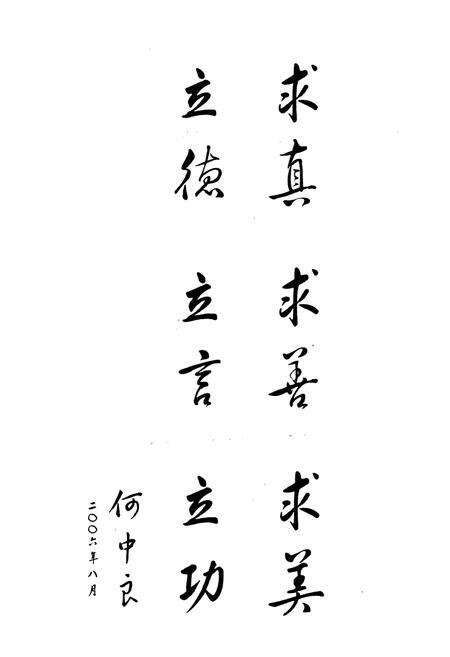 求真 求善 求美
立德 立言 立功
何中良
二〇〇六年八月